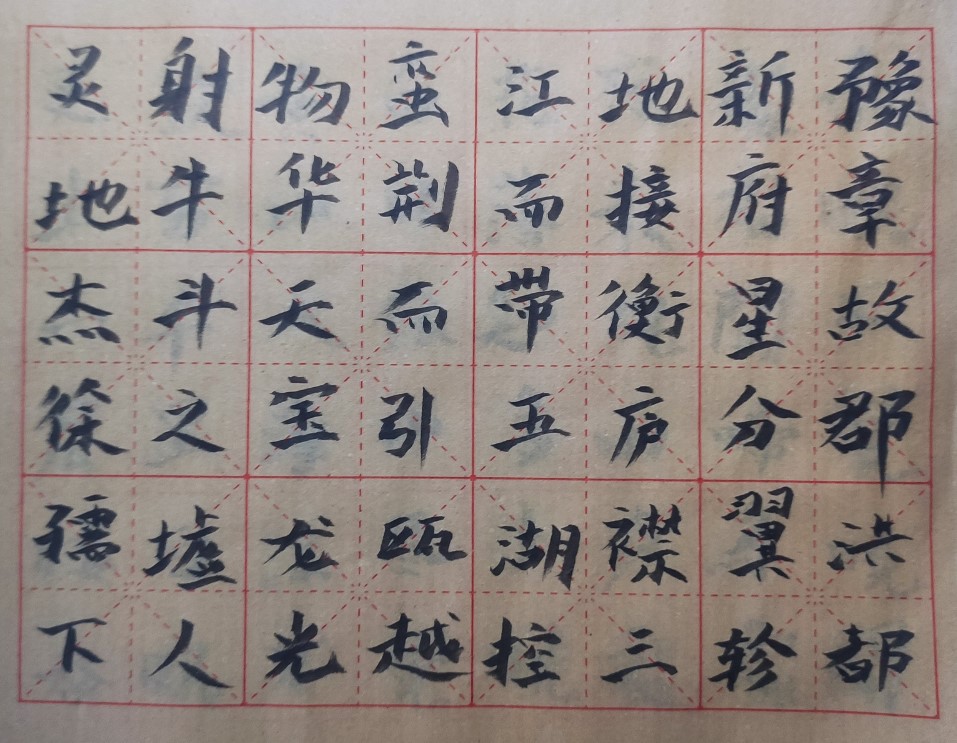 豫章故郡洪都
新府星分翼轸
地接衡庐襟三
江而带五湖控
蛮荆而引瓯越
物华天宝龙光
射牛斗之墟人
灵地杰徐孺下